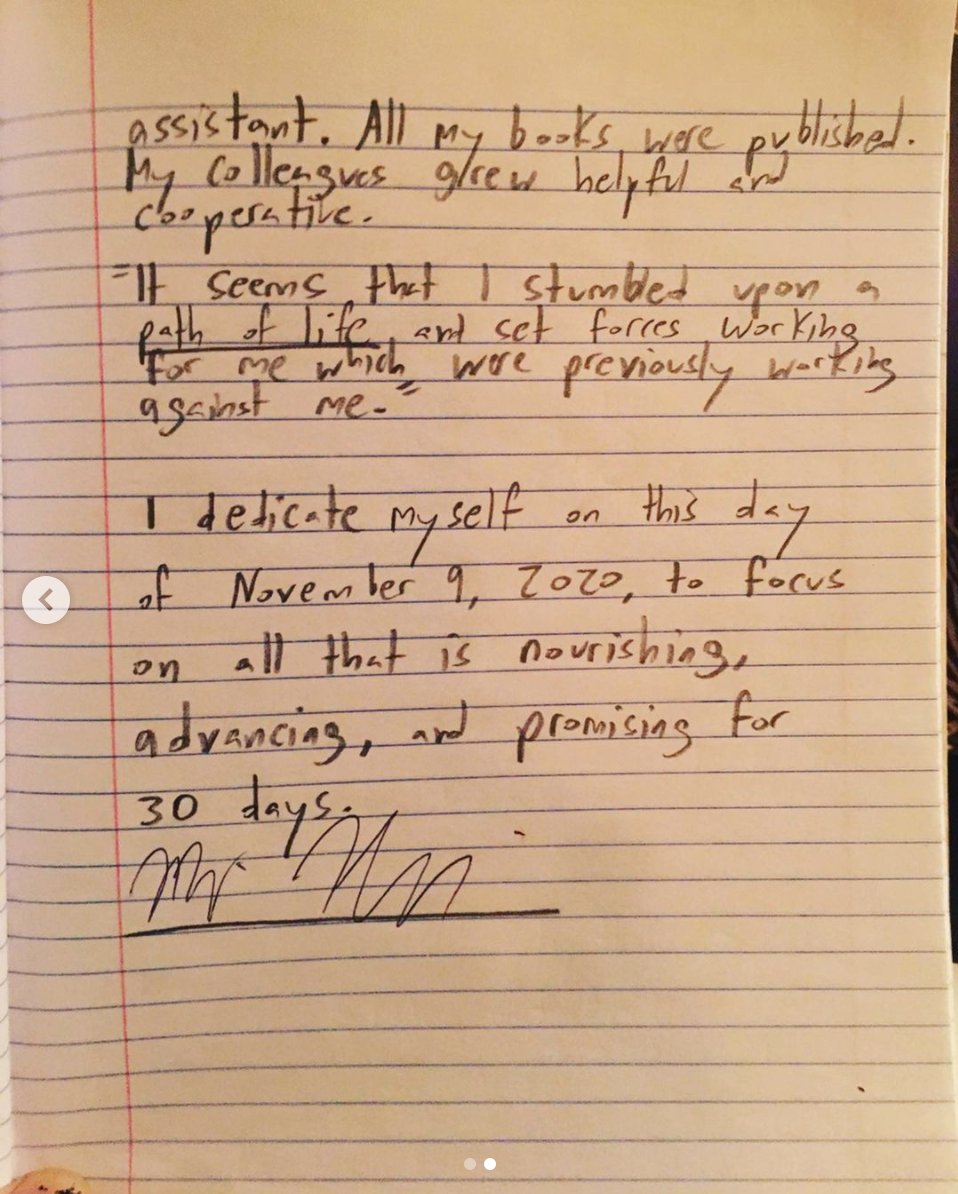 assistant. All my books were published.
My colleagues grew helpful and
cooperative.
"It seems that I stumbled upon a
path of life and set forces working
for me which were previously working
against me."
I dedicate myself on this day
of November 9, 2020, to focus
on all that is nourishing,
advancing, and promising for
30 days.